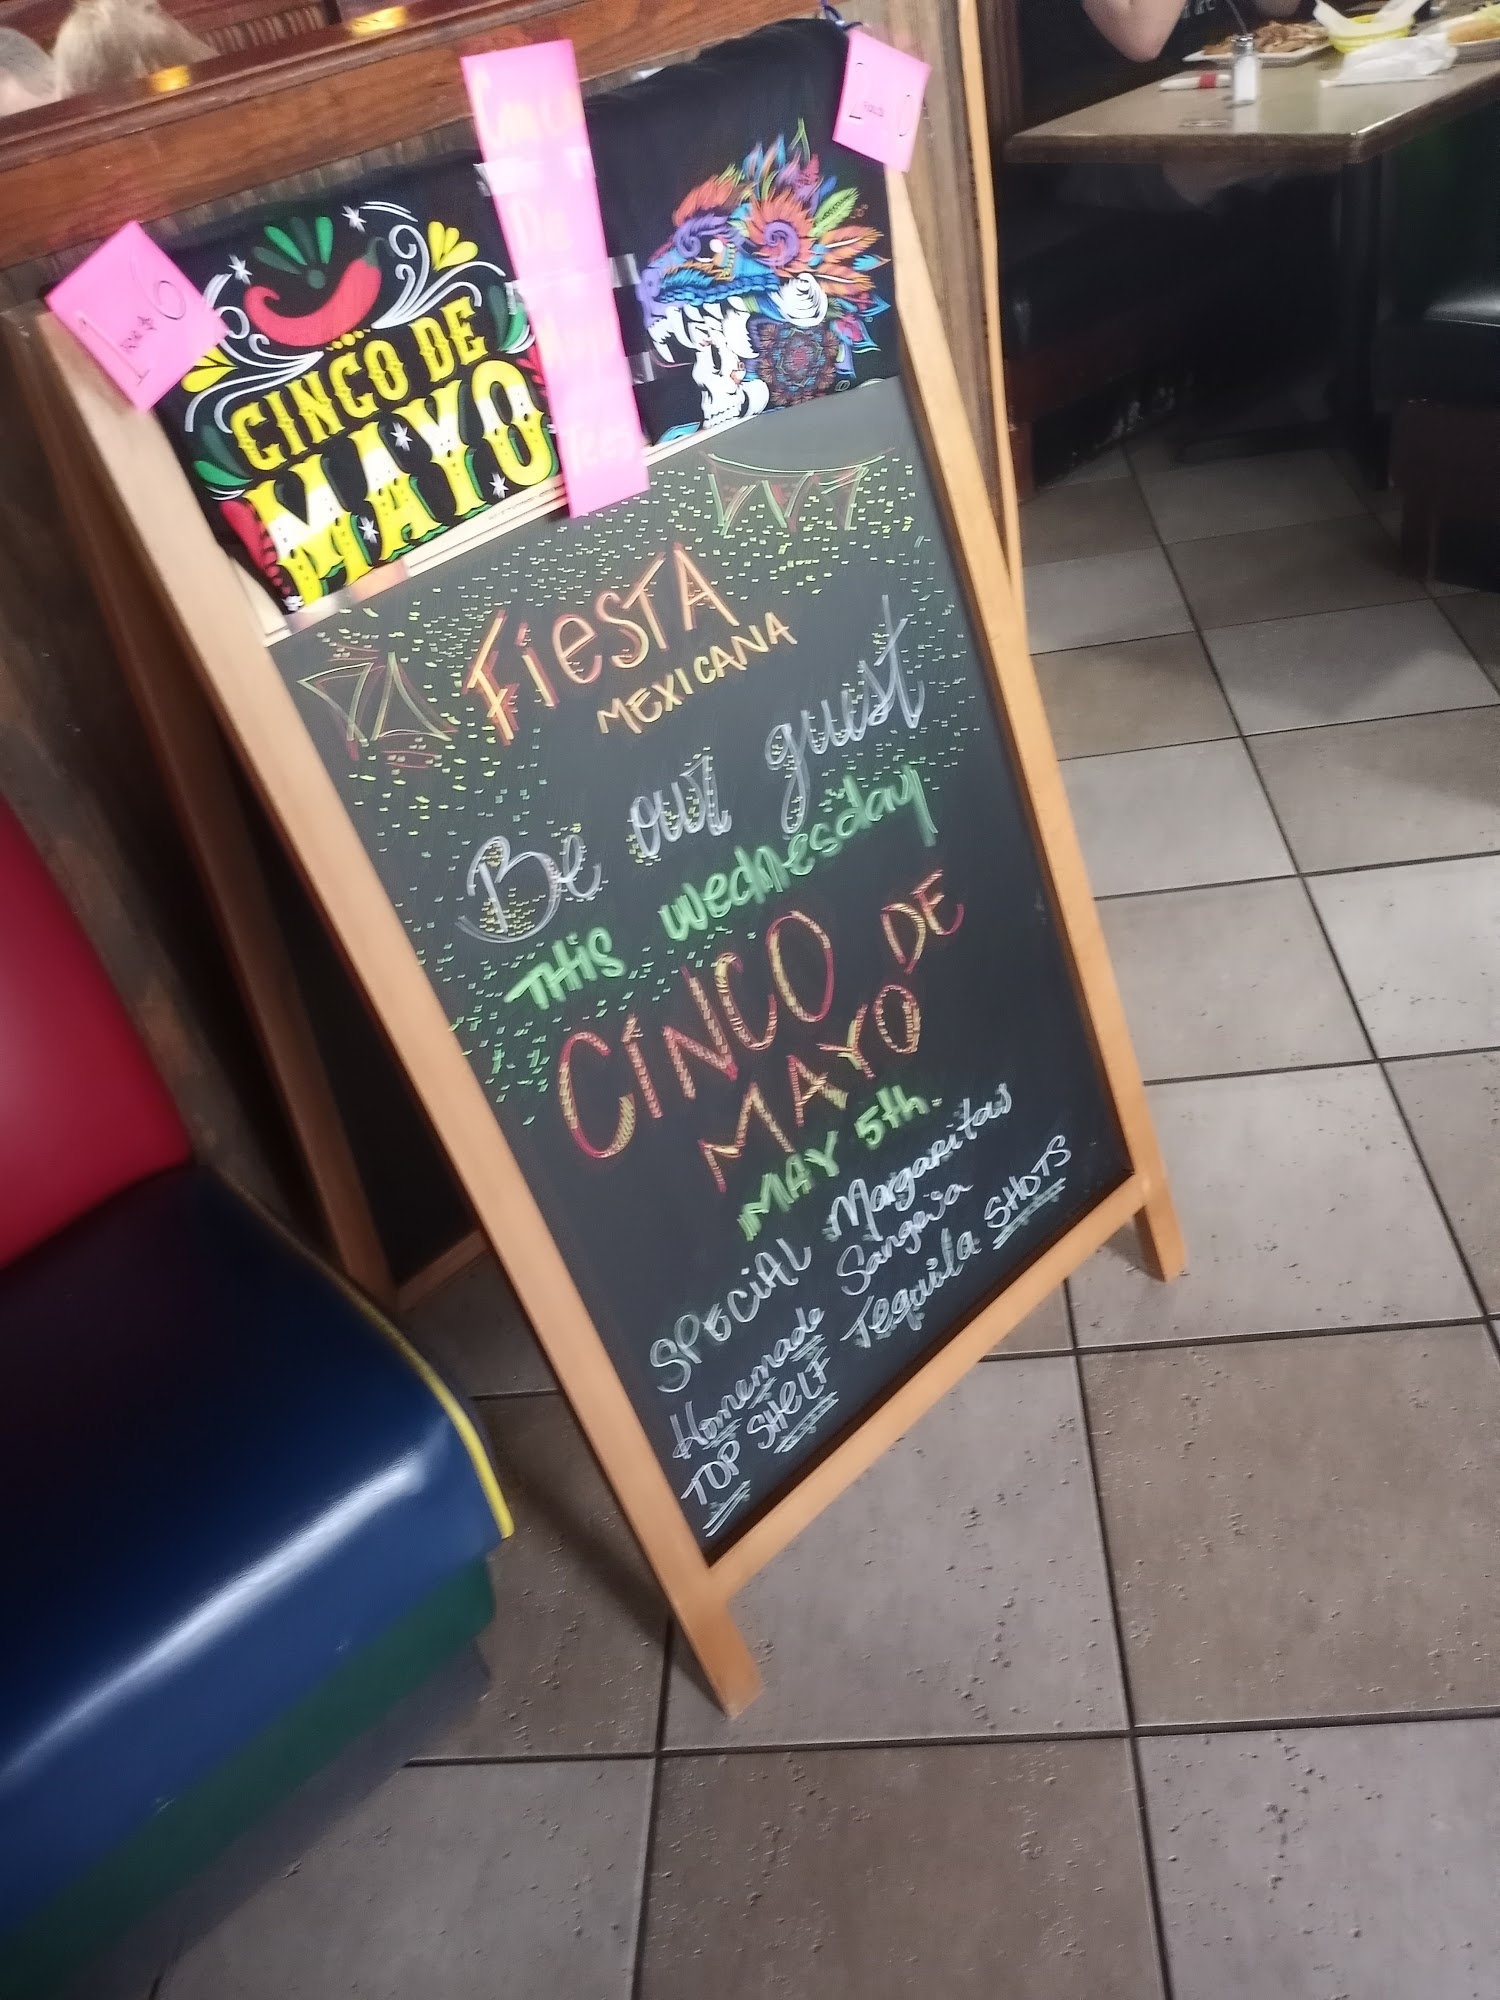 Cinco
De
Mayo
Tees
1 For $ 6
CINCO DE
MAYO
Fiesta
MEXICANA
Be our guest
THis wednesday
CINCO DE
MAYO
MAY 5th.
SPECiAL Margaritas
Homemade Sangria
TOP SHeLF Tequila SHOTS